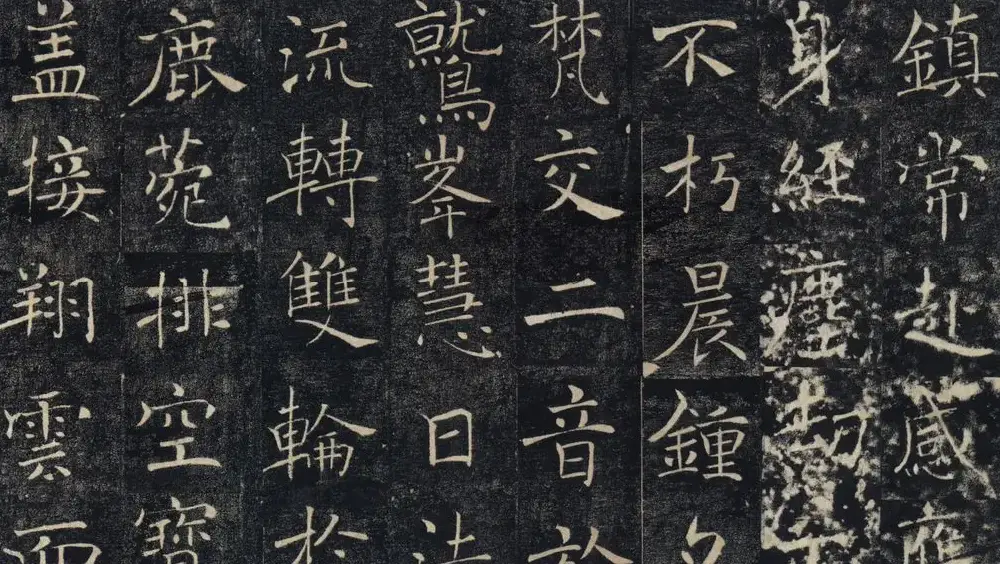 鎮常赴感應
身經塵劫
不朽晨鍾夕
梵交二音於
鷲峯慧日法
流轉雙輪於
鹿菀排空寶
盖接翔雲而